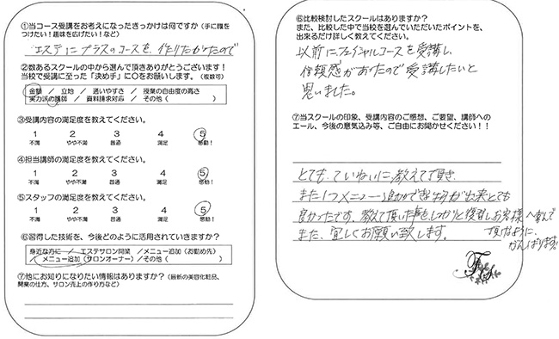 ①当コース受講をお考えになったきっかけは何ですか（手に職を
つけたい！趣味を広げたい！など）
エステにプラスのコースを作りたかたので
②数あるスクールの中から選んで頂きありがとうございます！
当校で受講に至った「決め手」に〇をお願いします。（複数可）
金額 / 立地 / 通いやすさ / 授業の自由度の高さ
実力派の講師 / 資料請求対応 / その他（ ）
③受講内容の満足度を教えてください。
1 2 3 4 5
不満 やや不満 普通 満足 感動！
④担当講師の満足度を教えてください。
1 2 3 4 5
不満 やや不満 普通 満足 感動！
⑤スタッフの満足度を教えてください。
1 2 3 4 5
不満 やや不満 普通 満足 感動！
⑥習得した技術を、今後どのように活用されていきますか？
身近な方に / エステサロン開業 / メニュー追加（お勤め先）
メニュー追加（サロンオーナー）/ その他（ ）
⑦他にお知りになりたい情報はありますか？（最新の美容化粧品、
開業の仕方、サロン売上の作り方など）
⑥比較検討したスクールはありますか？
また、比較した中で当校を選んでいただいたポイントを、
出来るだけ詳しく教えてください。
以前にフェイシャルコースを受講し、
信頼感があたので受講したいと
思いました。
⑦当スクールの印象、受講内容のご感想、ご要望、講師への
エール、今後の意気込み等、ご自由にお聞かせください！！
とても、ていねいに教えて頂き、
また1つメニュー追加で 出来とても
良かったです。教えて頂いた事をしっかりと復習しお客様へ喜んで
また、宜しくお願い致します。 頂けるように、
がんばります